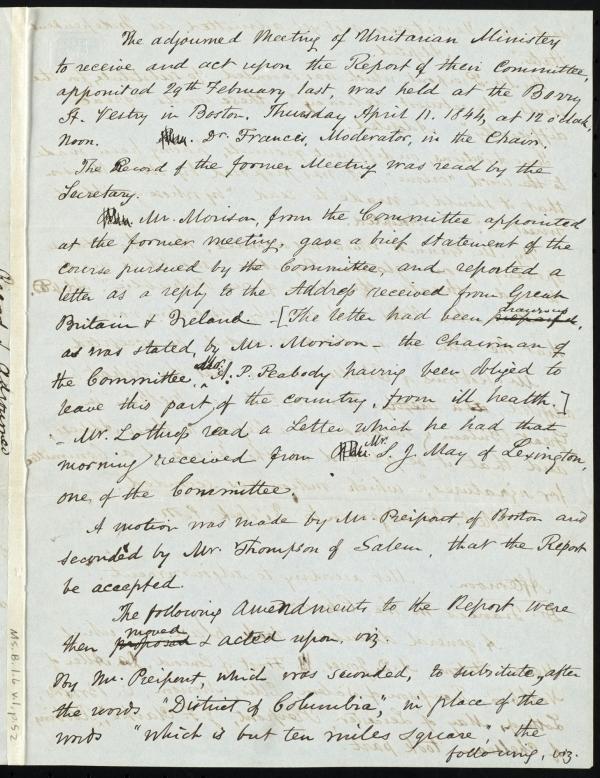 The adjourned Meeting of Unitarian Ministers
to receive and act upon the Report of their Committee,
appointed 29th February last, was held at the Berry
St. Vestry in Boston. Thursday April 11. 1844, at 12 o'clock,
noon. Dr. Francis, Moderator, in the Chair.
The Record of the former Meeting was read by the
Secretary.
Mr. Morison, from the Committee appointed
at the former meeting, gave a brief statement of the
course pursued by the Committee, and reported a
letter as a reply to the Address received from Great
Britain & Ireland. [The letter had been prepared, drawn up
as was stated, by Mr. Morison – the Chairman of
the Committee, A. P. Peabody having been obliged to
leave this part of the country, from ill health.]
– Mr. Lothrop read a Letter which he had that
morning received from Mr. S. J. May of Lexington,
one of the Committee.
A motion was made by Mr. Pierpont of Boston and
seconded by Mr. Thompson of Salem, that the Report
be accepted.
The following Amendments to the Report were
then proposed moved & acted upon, viz.
By Mr. Pierpont, which was seconded, to substitute, after
the words "District of Columbia", in place of the
words "which is but ten miles square", the
following, viz.
Ms.B.1.6 v.1, p.52